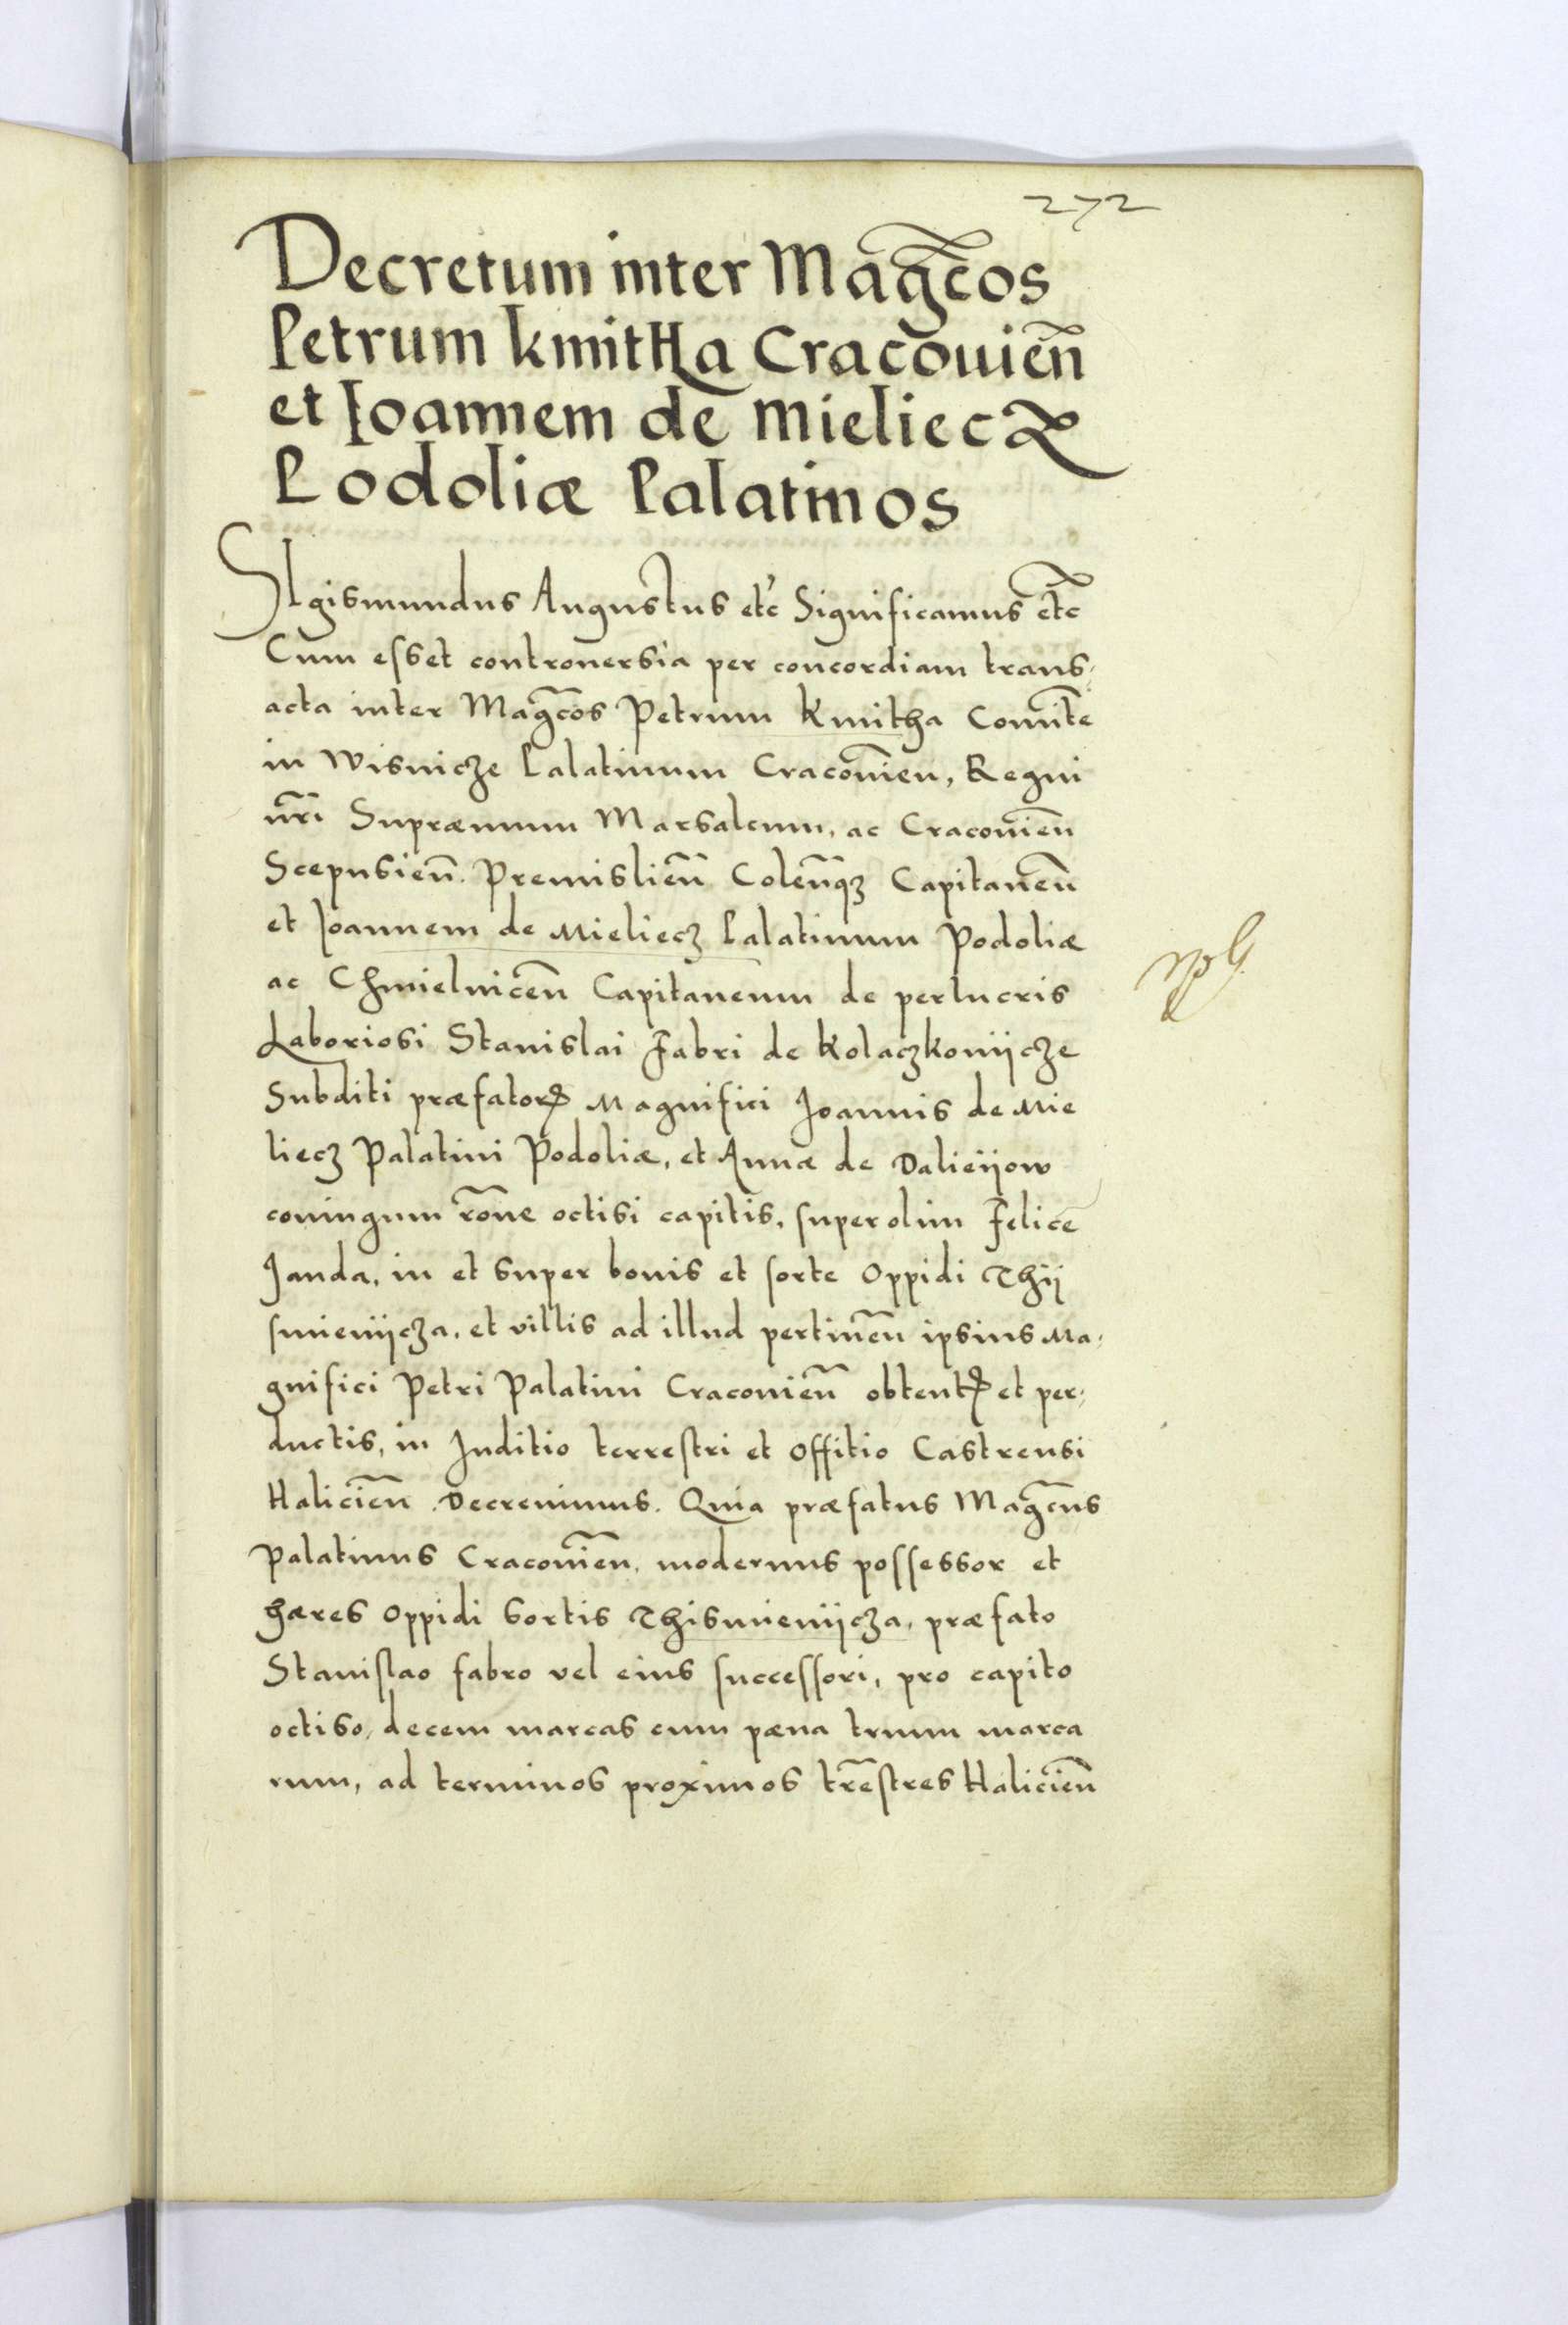 272
Decretum inter Mag̃cos
Petrum kmitha Cracouień
et Ioannem de Mieliecz
Podoliæ Palatinos
SIgismundus Augustus etc̃ Significamus etc̃
Cum esset controuersia per concordiam trans,
acta inter Mag̃cos Petrum Kmitha Comitẽ
in Wisnicze Palatinum Cracouień, Regni
nr̃i Supræmum Marsalcum, ac Cracouień
Scepusień. Premislień Coleñqꝫ Capitaneũ
et Joannem de Mieliecz Palatinum Podoliæ
ac Chmielniceñ Capitaneum de perlucris
Laboriosi Stanislai Fabri de Kolaczkowijcze
Subditi præfatorꝝ Magnifici Joannis de Mie
liecz Palatini Podoliæ, et Annæ de Dalieijow
coniugum rõne octisi capitis, super olim Felice
Janda, in et super bonis et sorte Oppidi Thij
smienijcza, et villis ad illud pertineñ ipsius Ma,
gnifici Petri Palatini Cracouień obtentꝭ et per,
ductis, in Juditio terrestri et Offitio Castrensi
Halicień Decreuimus. Quia præfatus Mag̃cus
Palatinus Cracouień, modernus possessor et
hæres Oppidi sortis Thismienijcza, præfato
Stanislao fabro vel eius successori, pro capito
octiso, decem marcas cum pæna trium marca
rum, ad terminos proximos tr̃estres Halicień